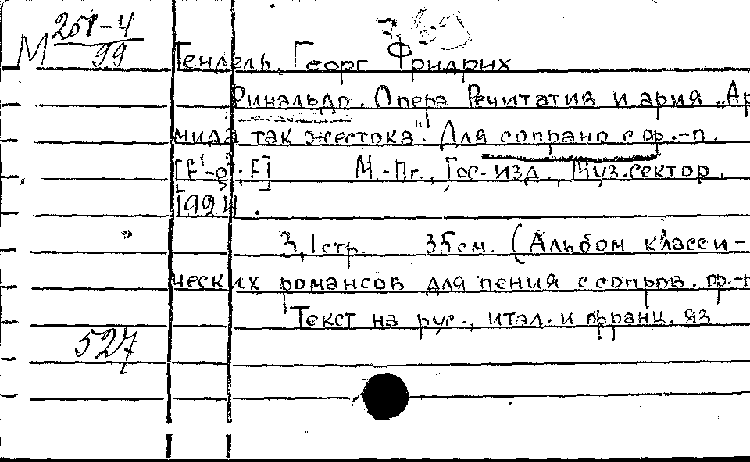 М 251-4
99
Гендель, Георг Фридрих
Ринальдо. Опера Речитатив и ария „Ар
мида так жестока". Для сопрано с ф.-п.
М.-Пг., Гос. изд. Муз. сектор,
3,1 стр. 35 см. (Альбом класси-
ческих романсов для пения с сопров. ф.-п
Текст на рус., итал. и франц. яз
527